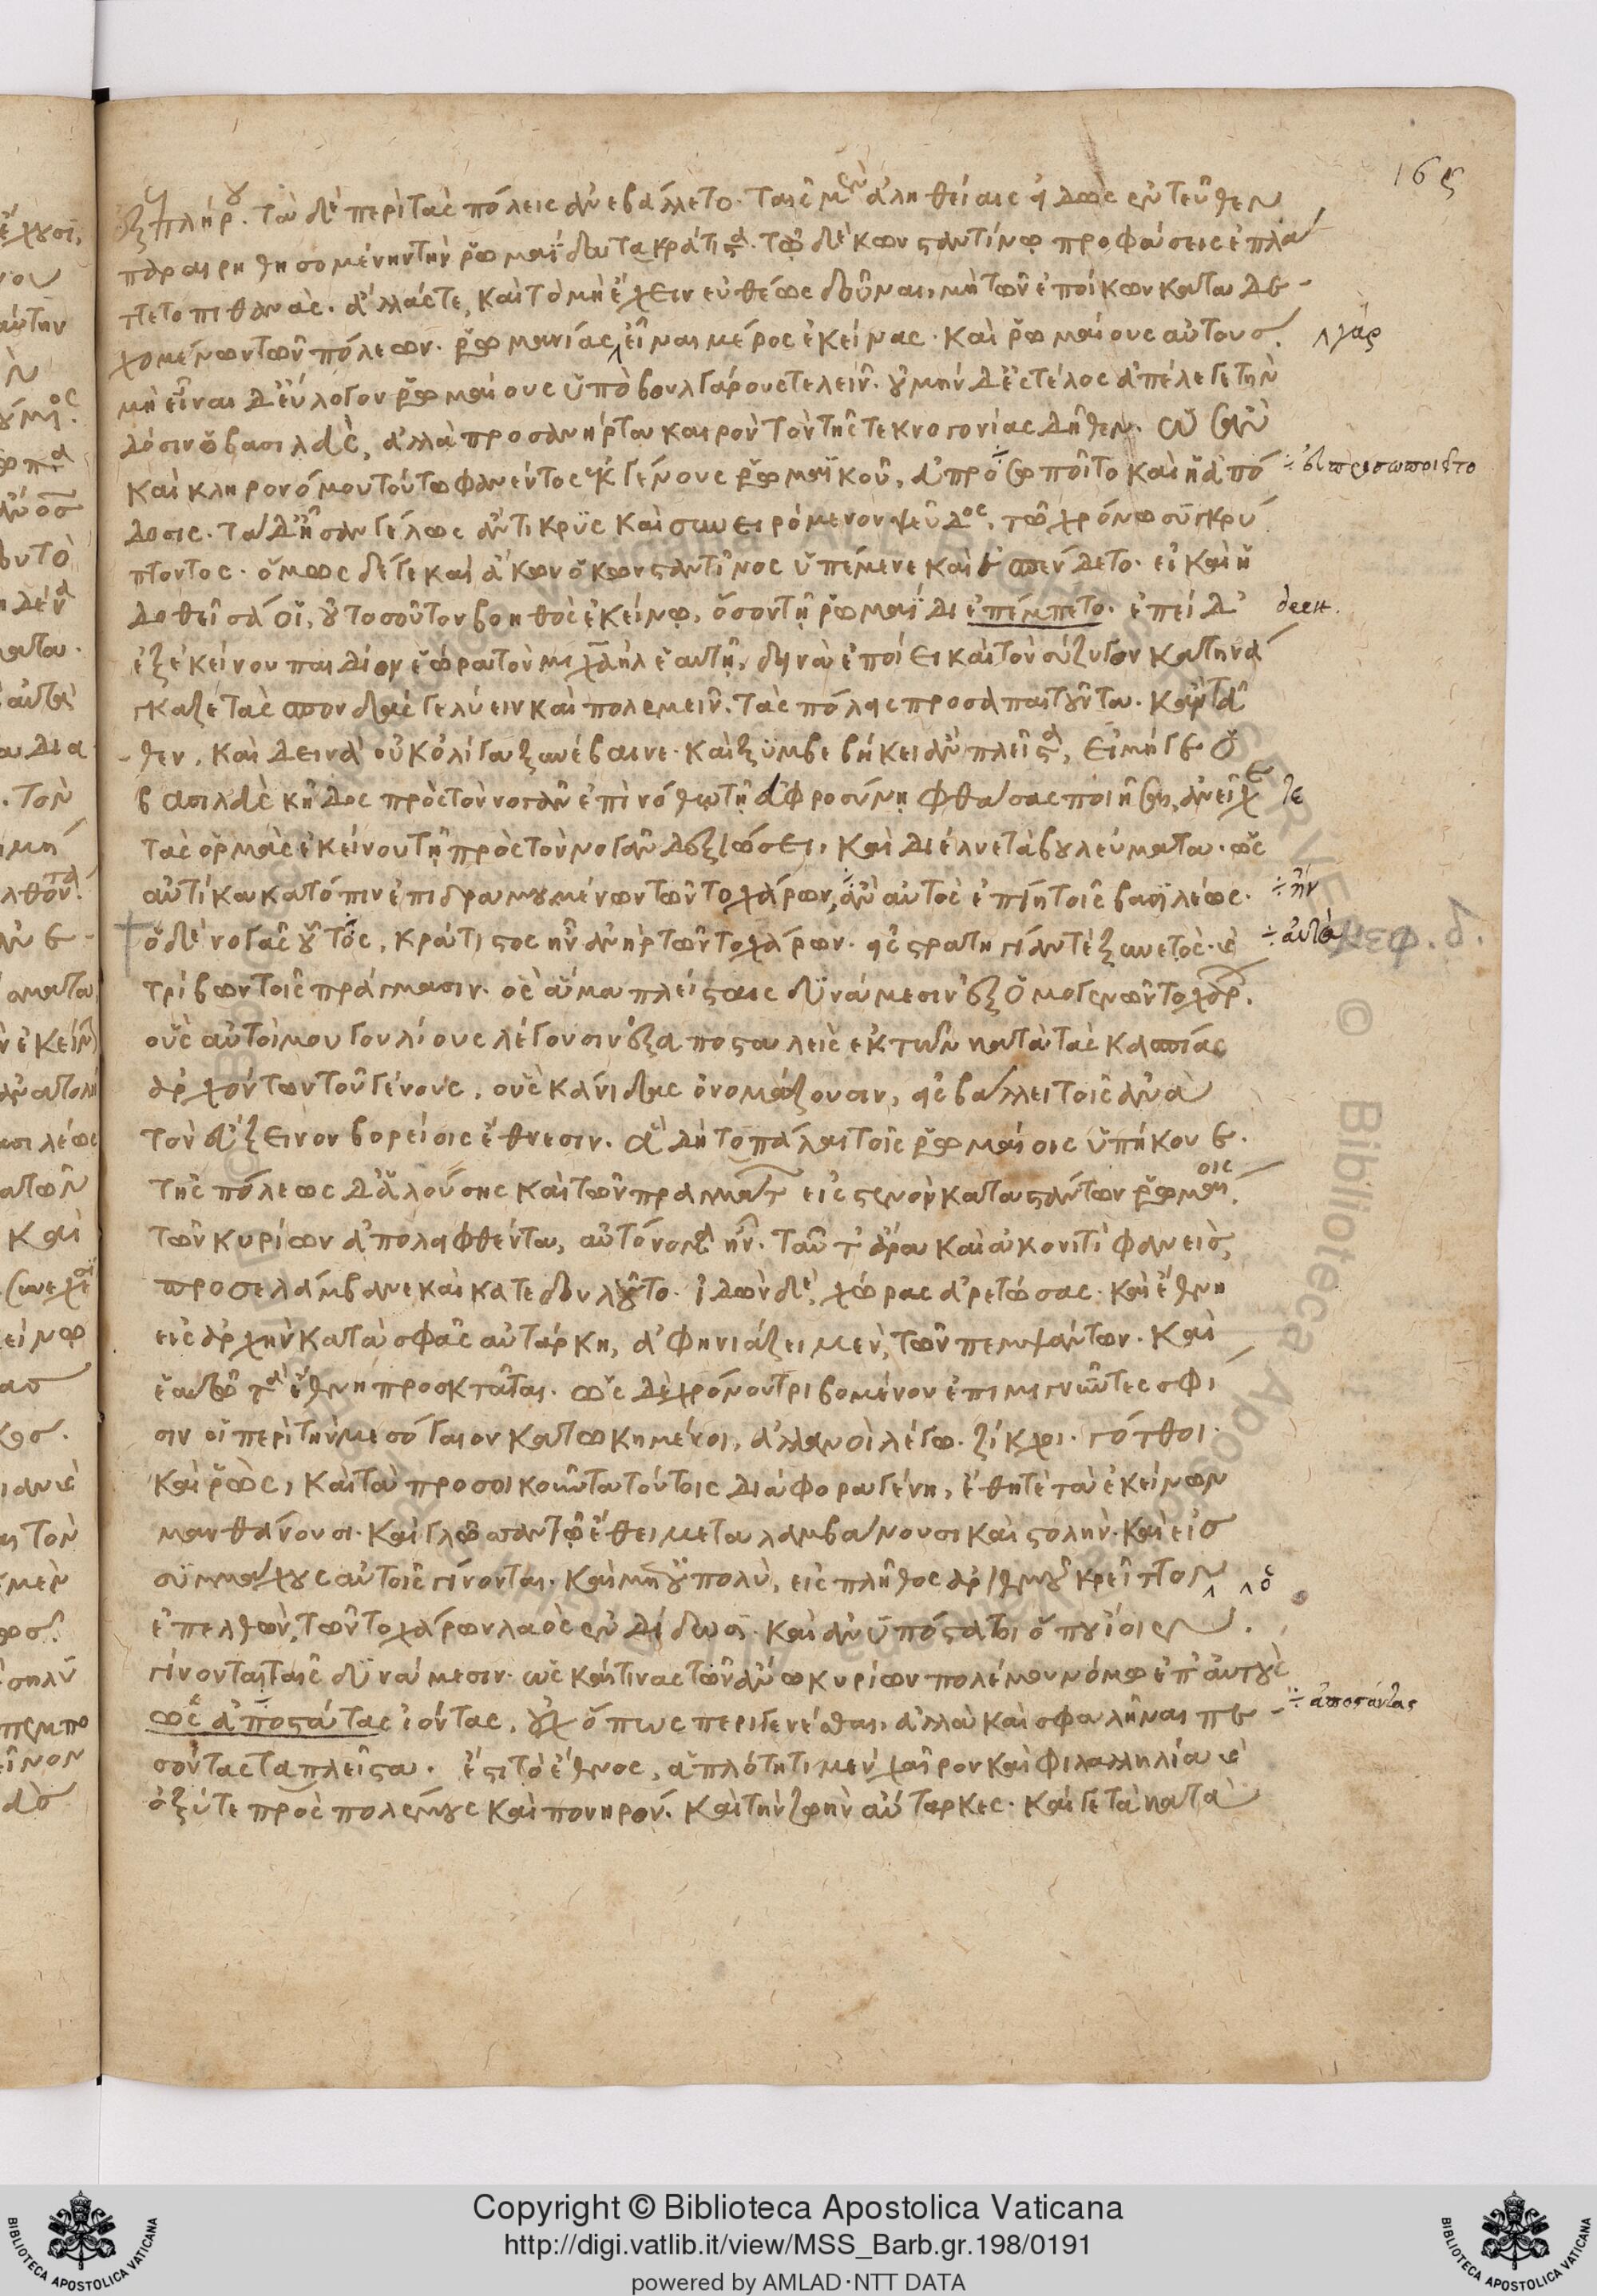 165
ἐξεπλήρου. τὰ δὲ περὶ τὰς πόλεις ἀνεβάλλετο. ταῖς μὲν ἀληθείαις εἰδὼς ἐντεῦθεν
παραιρηθησομένην τὴν ῥωμαΐδα τὰ κράτιστα. τῷ δὲ κωνσταντίνῳ προφάσεις ἐπλά
ττετο πιθανάς. ἄλλάς τε, καὶ τὸ μὴ ἔχειν εὐθέως δοῦναι, μὴ τῶν ἐποίκων καταδε-
χομένων τῶν πόλεων. ῥωμανίας εἶναι μέρος ἐκείνας. καὶ ῥωμαίους αὐτούς. γὰρ
μὴ εἶναι δ' εὔλογον ῥωμαίους ὑπὸ βουλγάρους τελεῖν. οὐ μὴν δ' εἰς τέλος ἀπέλεγε τὴν
δόσιν ὁ βασιλεὺς, ἀλλὰ προσανήρτα καιρὸν τὸν τῆς τεκνογονίας δῆθεν. ὡς ἂν
καὶ κληρονόμου τούτῳ φανέντος ἐκ γένους ῥωμαϊκοῦ, ἀπροφασιστοῖτο καὶ ἡ ἀπό
δοσις. τὰ δ' ἦσαν γέλως ἄντικρυς καὶ συνειρόμενον ψεῦδος, τῷ χρόνῳ συγκρύ
πτοντος. ὅμως δέ γε καὶ ἄκων ὁ κωνσταντῖνος ὑπέμενε καὶ ἐσπένδετο. εἰ καὶ ἡ
δοθεῖσά οἱ, οὐ τοσοῦτον βοηθὸς ἐκείνῳ, ὅσον τῇ ῥωμαΐδι ἐπέμπετο. ἐπεὶ δ' deest.
ἐξ ἐκείνου παιδίον ἑώρα τὸν μιχαὴλ ἑαυτῇ, δεινὰ ἐποίει καὶ τὸν σύζυγον κατηνά
γκαζε τὰς σπονδάς γε λύειν καὶ πολεμεῖν. τὰς πόλεις προσαπαιτοῦντα. κἀνταῦ
-θεν, καὶ δεινὰ οὐκ ὀλίγα ξυνέβαινε. καὶ ξυμβεβήκει ἂν πλεῖστα, εἰ μή γε ὁ
βασιλεὺς κῆδος πρὸς τὸν νογᾶν ἐπὶ νόθῳ τῇ εὐφροσύνῃ φθάσας ποιῆσαι, ἀνεῖχέ τε
τὰς ὁρμὰς ἐκείνου τῇ πρὸς τὸν νογᾶν δεξιώσει, καὶ διέλυε τὰ βουλεύματα. ὡς
αὐτίκα κατόπιν ἐπιδραμουμένων τῶν τοχάρων, ἂν αὐτὸς ἐπίῃ τοῖς βασιλέως. ἢν
ὁ δὲ νογᾶς οὗτος, κράτιστος ἦν ἀνὴρ τῶν τοχάρων. εἰς στρατηγίαν τε ξυνετὸς. καὶ αὐτὸς κεφ. δ.
τρίβων τοῖς πράγμασιν. ὃς ἅμα πλείσταις δυνάμεσιν ἐξ ὁμογενῶν τοχάρων.
οὓς αὐτοὶ μουγουλίους λέγουσιν ἐξαποσταλεὶς ἐκ τῶν κατὰ τὰς κασπίας
ἀρχόντων τοῦ γένους, οὓς κάνιδας ὀνομάζουσιν, εἰσβάλλει τοῖς ἀνὰ
τὸν εὔξεινον βορείοις ἔθνεσιν. ἃ δὴ τὸ πάλαι τοῖς ῥωμαίοις ὑπήκουε.
τῆς πόλεως δ' ἁλούσης καὶ τῶν πραγμάτων εἰς στενὸν καταστάντων ῥωμαίοις.
τῶν κυρίων ἀπολειφθέντα, αὐτόνομα ἦν. ταῦτ' ἄρα καὶ ἀκονιτὶ φανεὶς,
προσελάμβανε καὶ κατεδουλοῦτο. ἰδὼν δὲ, χώρας ἀρετώσας. καὶ ἔθνη
εἰς ἀρχὴν κατὰ σφᾶς αὐτάρκη, ἀφηνιάζει μὲν, τῶν πεμψάντων. καὶ
ἑαυτῷ τὰ ἔθνη προσκτᾶται. ὡς δὲ χρόνου τριβομένου ἐπιμιγνύντες σφί
σιν οἱ περὶ τὴν μεσόγαιον κατῳκημένοι, ἀλανοὶ λέγω. ζίκχοι. γότθοι.
καὶ ῥῶς, καὶ τὰ προσοικοῦντα τούτοις διάφορα γένη, ἔθη τὲ τὰ ἐκείνων
μανθάνουσι. καὶ γλῶσσαν τῷ ἔθει μεταλαμβάνουσι καὶ στολήν. καὶ εἰς
συμμάχους αὐτοῖς γίνονται. καὶ μετ' οὐ πολὺ, εἰς πλῆθος ἀριθμοῦ κρεῖττον
ἐπελθὼν, τῶν τοχάρων λαὸς ἐπιδίδωσι. καὶ ἀνυπόστατοι ὁποίοις ἂν. ὁ
γίνονται ταῖς δυνάμεσιν. ὡς καί τινας τῶν ἄνω κυρίων πολέμου νόμῳ ἐπ' αὐτοὺς
ὡς ἀποστάτας ἰόντας, οὐχ ὅπως περιγενέσθαι, ἀλλὰ καὶ σφαλῆναι πε- ἀποστάντας
σόντας τὰ πλεῖστα. ἔστι τὸ ἔθνος, ἁπλότητι μὲν χαῖρον καὶ φιλαλληλίᾳ καὶ
ὀξύ τε πρὸς πολέμους καὶ πονηρόν. καὶ τὴν ζωὴν αὔταρκες. καί γε τὰ κατὰ
Copyright © Biblioteca Apostolica Vaticana
http://digi.vatlib.it/view/MSS_Barb.gr.198/0191
powered by AMLAD·NTT DATA